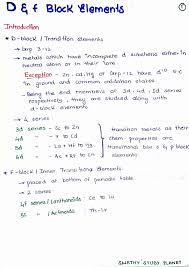 D & f Block Elements
Introduction
* D-block / Transition elements
→ Grp 3-12
→ metals which have incomplete d subshell either in
neutral atom or in their ions
Exception - Zn, Cd, Hg of Grp-12 have d¹⁰ e⁻c
in ground and common oxidation states
- Being the end members of 3d, 4d, 5d series
respectively, they are studied along with
d-block elements
→ 4 series
3d series - Sc to Zn
4d - Y to Cd
5d
6d
transition metals as their
chem properties are
transitional b/w s & p
block elements
* F-block / Inner Transition Elements
→ placed at bottom of periodic table
→ 2 series
4f series / Lanthanoids - Ce to
5f / Actinoids - Th-Lr
SWATHY STUDY PLANET